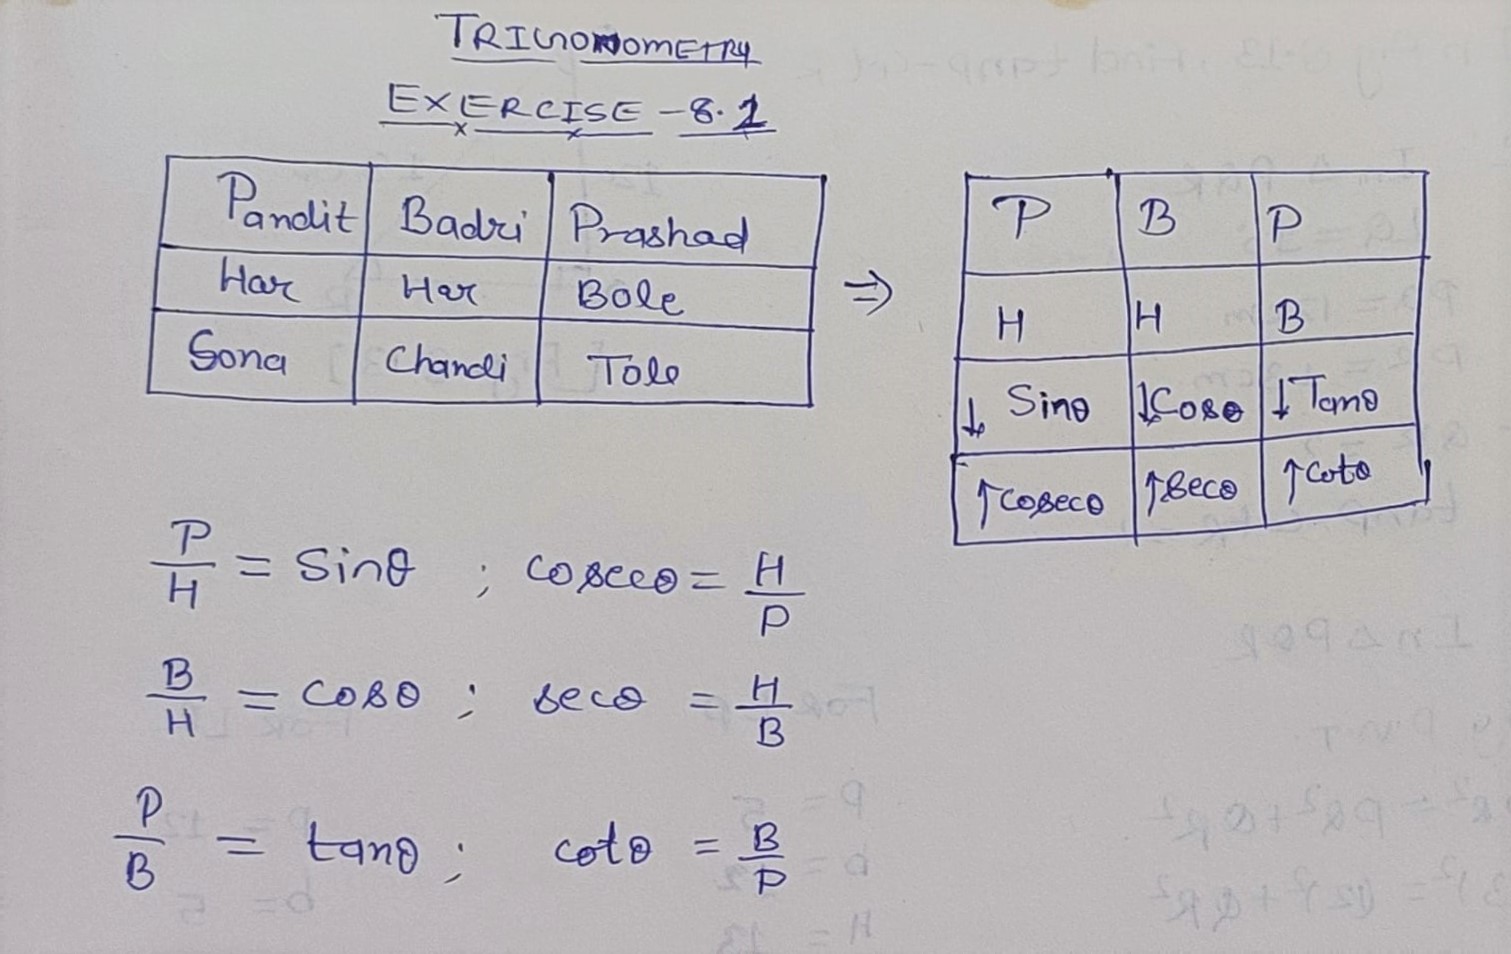 TRIGONOMETRY
EXERCISE - 8.1
Pandit Badri Prashad
Har Har Bole
Sona Chandi Tole
⇒
P B P
H H B
↓ Sinθ ↓Cosθ ↓Tanθ
↑cosecθ ↑secθ ↑cotθ
P/H = Sinθ ; cosecθ = H/P
B/H = cosθ ; secθ = H/B
P/B = tanθ ; cotθ = B/P